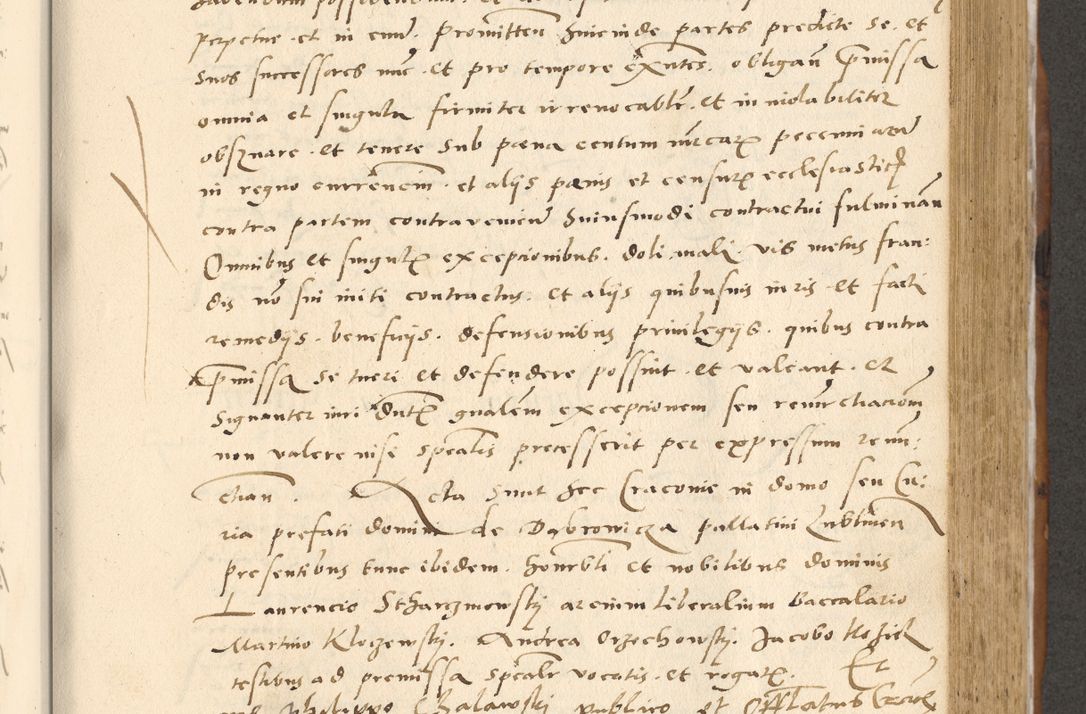 perpetue et in eum̄. Promitten̄ hincinde partes predicte se. et
Suos successores nunc. et pro tempore exn̄tes. obligan̄ p̄missa
omnia et singula firmiter irrevocabilr̄. et inviolabiliter
obs̄uare. et tenere sub pæna centum marcarȝ peccuniarū
in regno currēncium. et alijs pænis et censurȝ ecclesiasticȝ
contra partem contravenien̄ huiusmodi contractui fulminan̄
Omnibus et singulȝ excepcionibus. doli mali. vis metus frau:
dis nō sui initi contractus: et alijs quibusuis iuris. et facti
remedijs. beneficijs. defensionibus privilegijs. quibus contra
p̄missa se tueri et defendere possint. et valeant. et
Signanter iuri dn̄tȝ gnālem excepcionem seu renūctiacīom
non valere nisi spēalis precesserit per expressum renū:
ctian̄. Acta sunt hec Cracovie in domo seu Cu:
ria prefati domini de Dąbrowicza pallatini Lublinen̄
presentibus tunc ibidem. honorbli et nobilibus dominis
Laurencio Stharzmowskij arcium liberalium baccalario
Martino Kloczewskij. Andrea Orzechowskij. Jacobo Kozick
testibus ad premissa spēalr vocatis. et rogatȝ. Et
Philippo Chalawski publico et